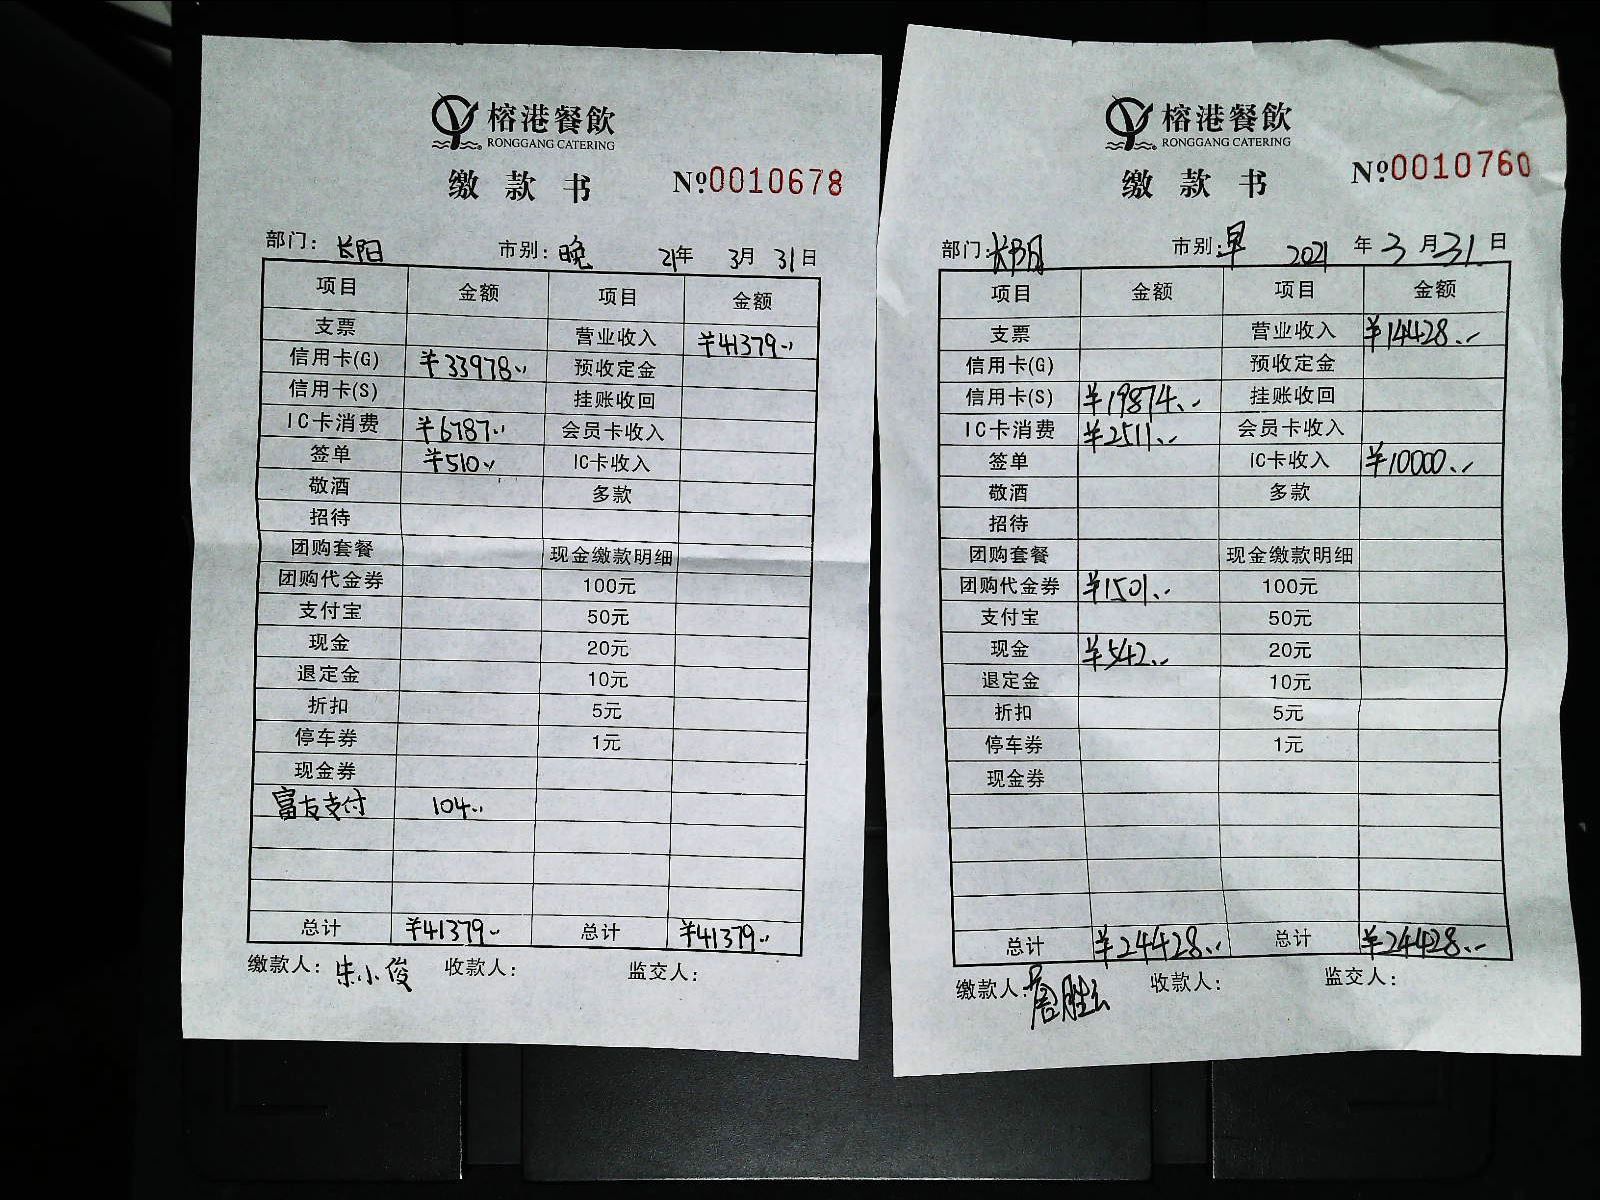 榕港餐飲
RONGGANG CATERING
缴款书 №0010678
部门：长阳 市别：晚 21年 3月 31日
项目 金额 项目 金额
支票 营业收入 ¥41379..
信用卡(G) ¥33978.. 预收定金
信用卡(S) 挂账收回
IC卡消费 ¥6787.. 会员卡收入
签单 ¥510.. IC卡收入
敬酒 多款
招待
团购套餐 现金缴款明细
团购代金券 100元
支付宝 50元
现金 20元
退定金 10元
折扣 5元
停车券 1元
现金券
富友支付 104..
总计 ¥41379.. 总计 ¥41379..
缴款人：朱小俊 收款人： 监交人：
榕港餐飲
RONGGANG CATERING
缴款书 №0010760
部门：长阳 市别：早 2021年 3月 31日
项目 金额 项目 金额
支票 营业收入 ¥14428..
信用卡(G) 预收定金
信用卡(S) ¥19874.. 挂账收回
IC卡消费 ¥2511.. 会员卡收入
签单 IC卡收入 ¥10000..
敬酒 多款
招待
团购套餐 现金缴款明细
团购代金券 ¥1501.. 100元
支付宝 50元
现金 ¥542.. 20元
退定金 10元
折扣 5元
停车券 1元
现金券
总计 ¥24428.. 总计 ¥24428..
缴款人： 收款人： 监交人：